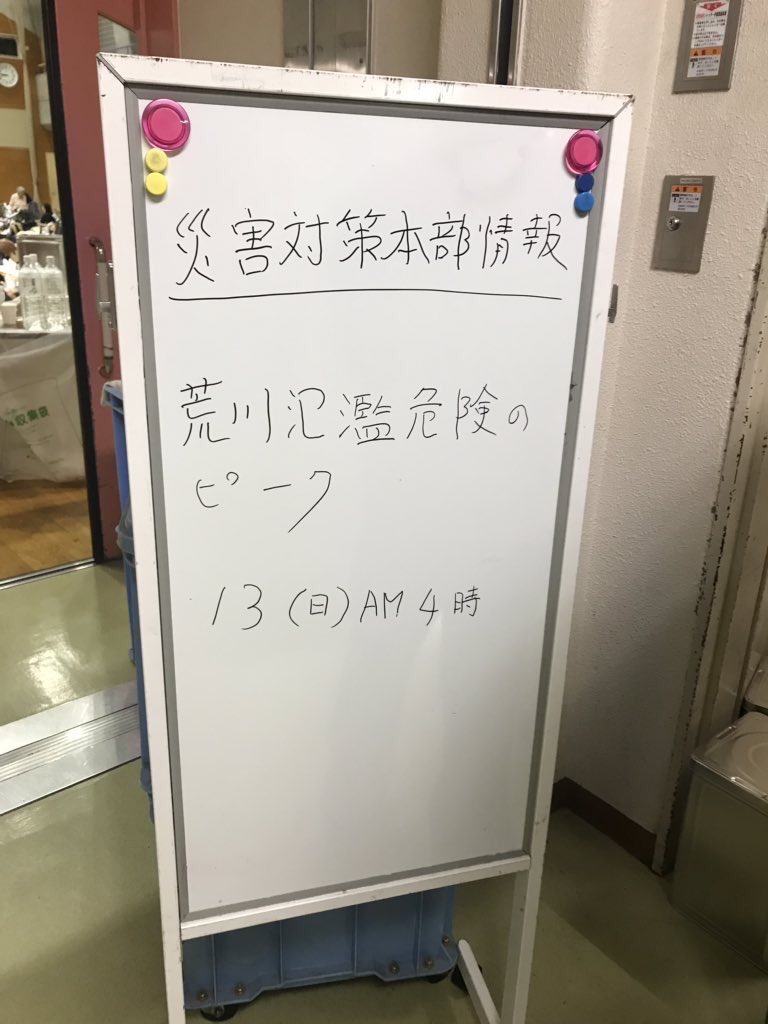 災害対策本部情報
荒川氾濫危険の
ピーク
13(日)AM4時